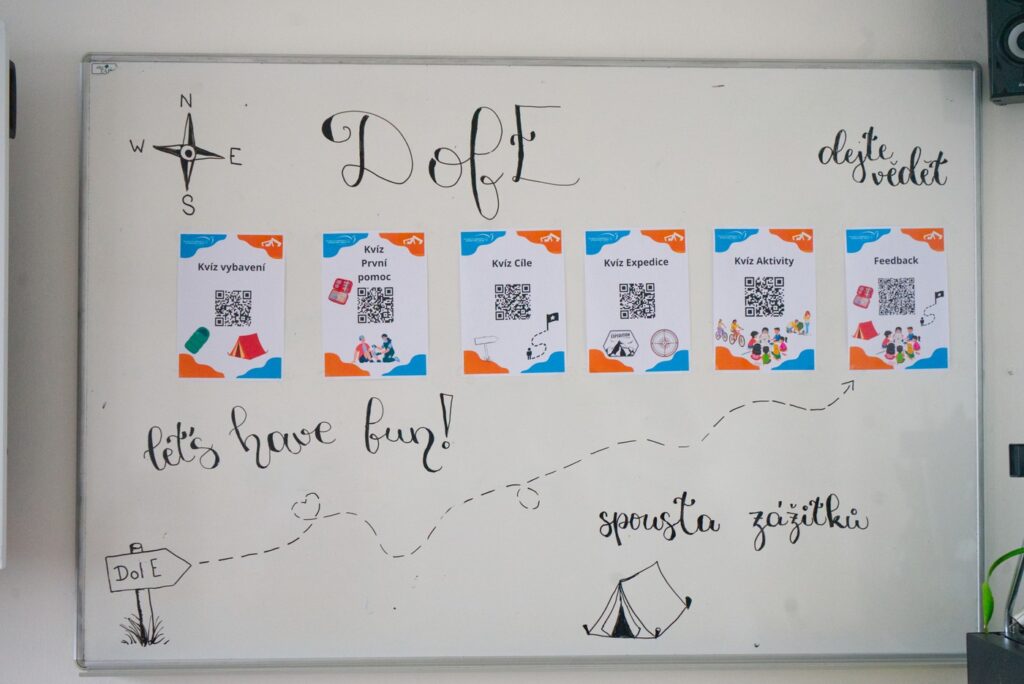 N
W E
S
DofE
dejte
vědět
Kvíz vybavení
Kvíz
První
pomoc
Kvíz Cíle
Kvíz Expedice
Kvíz Aktivity
Feedback
EXPEDITION
let's have fun!
spousta zážitků
DofE